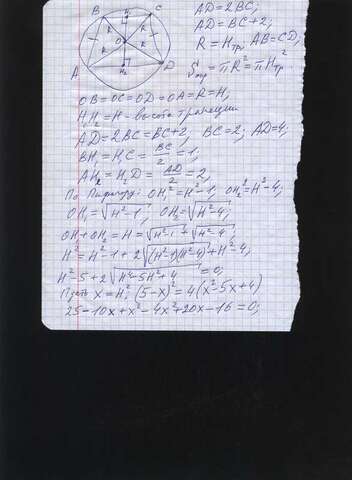 AD=2BC;
B H₁ C
AD=BC+2;
R R
R=Hтр; AB=CD;
O
R R
Sокр=πR²=πHтр²
A H₂ D
OB=OC=OD=OA=R=H;
H₁H₂=H-высота трапеции
AD=2BC=BC+2; BC=2; AD=4;
BH₁=H₁C=BC/2=1;
AH₂=H₂D=AD/2=2;
По Пифагору: OH₁²=H²-1; OH₂²=H²-4;
OH₁=√(H²-1); OH₂=√(H²-4);
OH₁+OH₂=H=√(H²-1)+√(H²-4);
H²=H²-1+2√((H²-1)(H²-4))+H²-4;
H²-5+2√(H⁴-5H²+4)=0;
Пусть x=H²; (5-x)²=4(x²-5x+4)
25-10x+x²-4x²+20x-16=0;